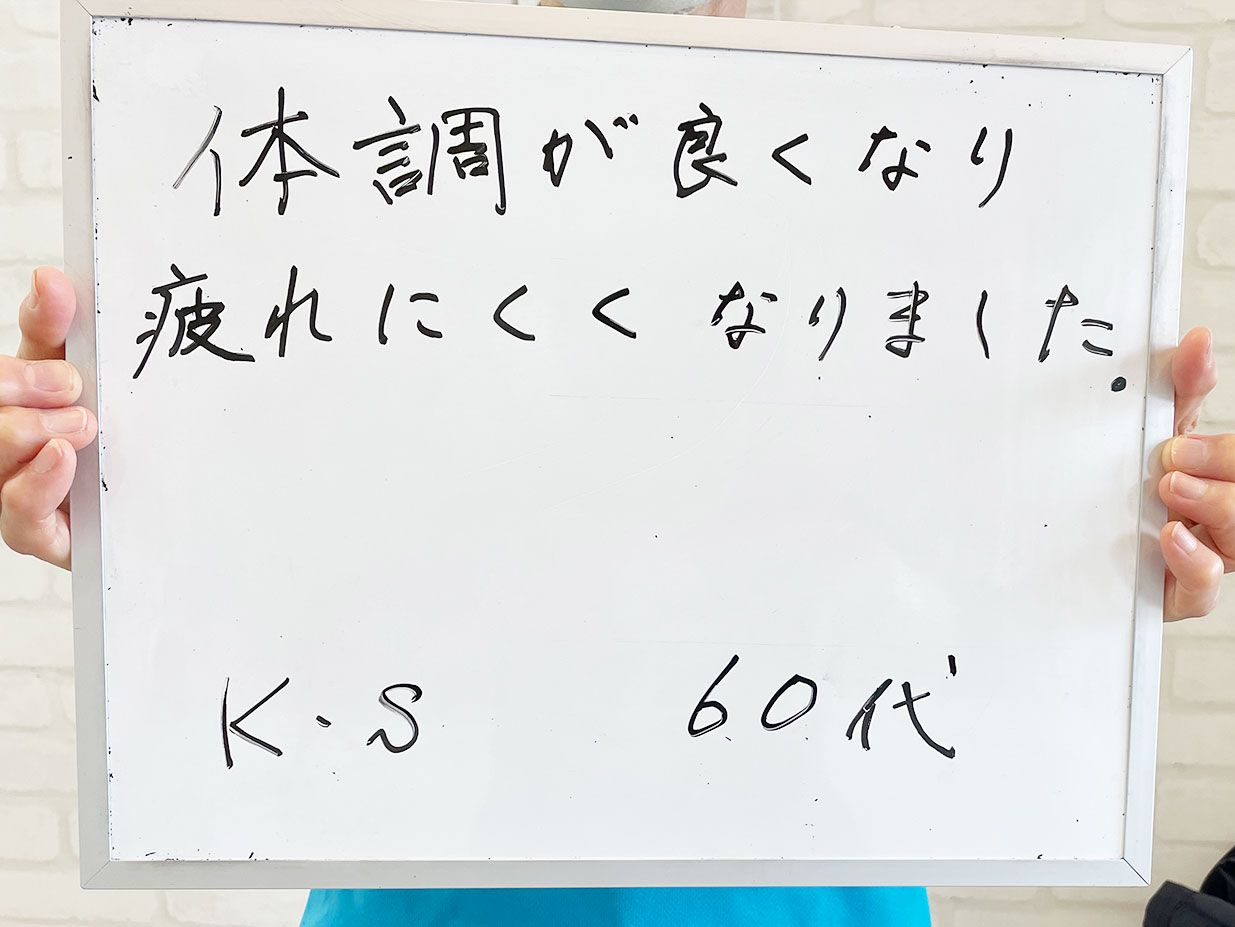 体調が良くなり
疲れにくくなりました.
K・S 60代